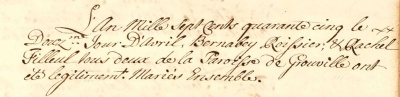 L'An Mille Sept Cents quarante cinq le
Douz.me Jour D'Avril, Bernabey Roissier, & Rachel
Filleul tous deux de la Paroisse de Grouville ont
étés legitiment Mariés Ensemble.